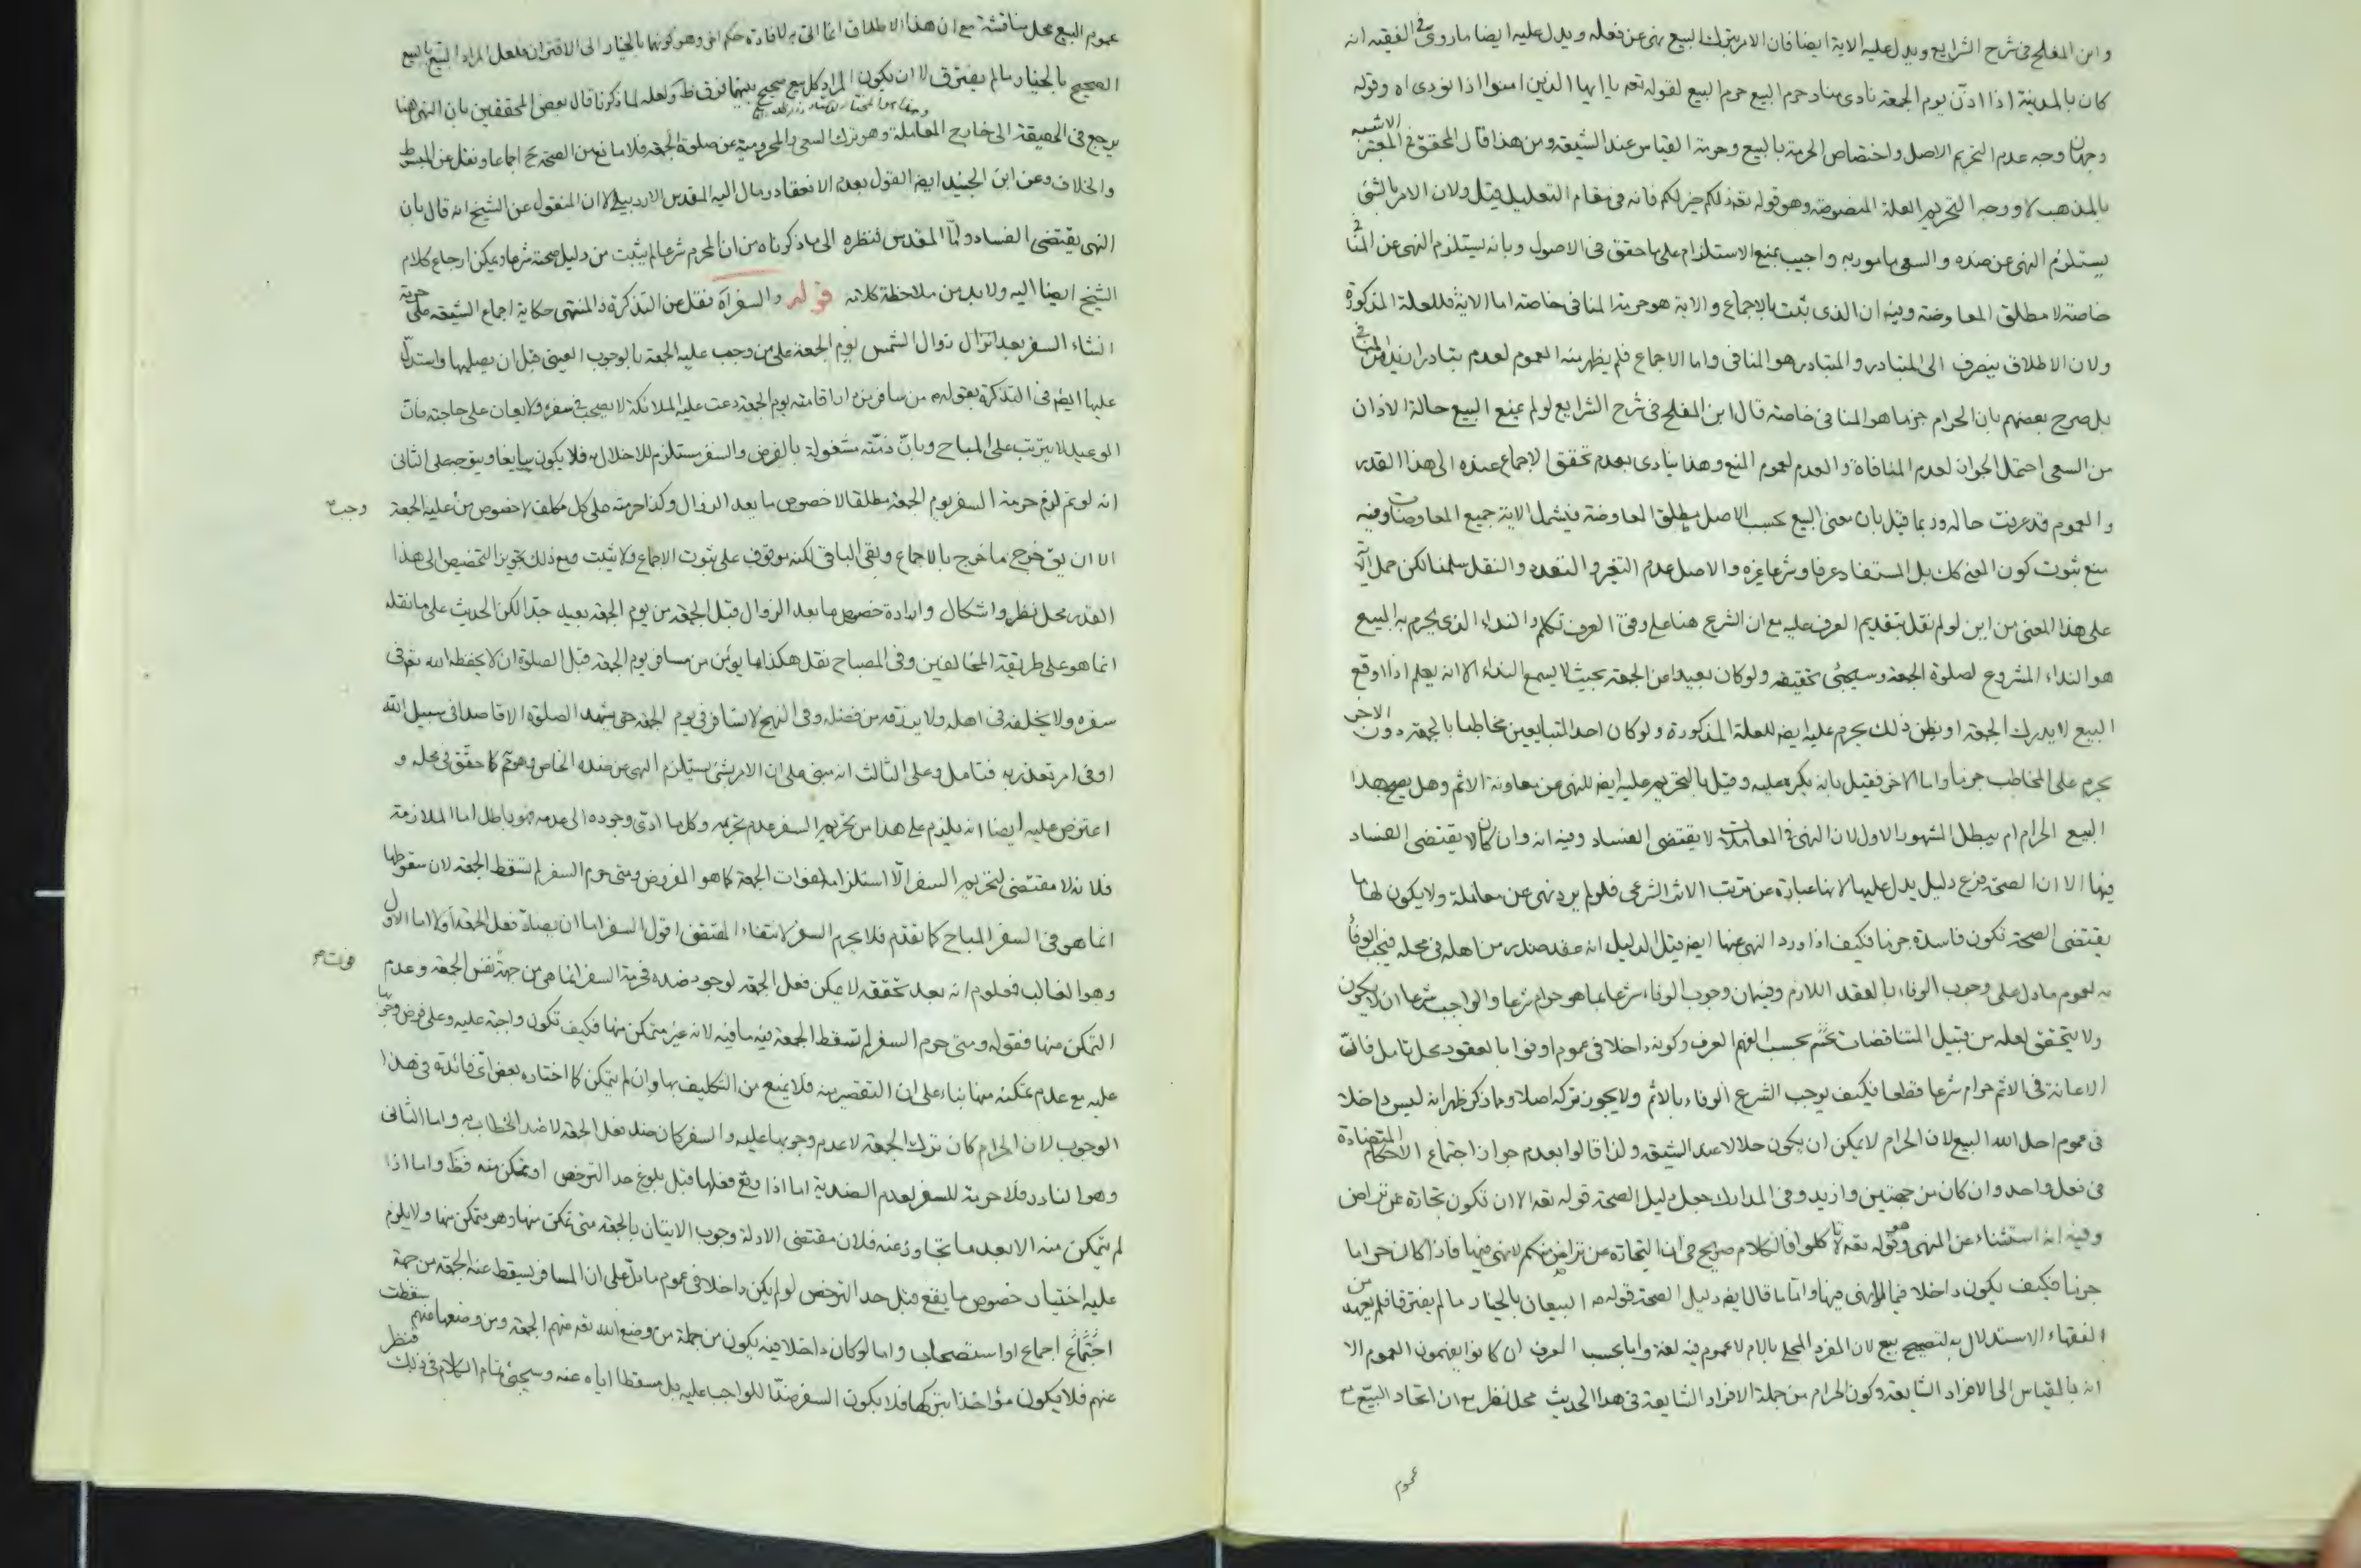 وابن المفلح في شرح الشرايع ويدل عليه الاية ايضا فان الامر بترك البيع نهى عن فعله ويدل عليه ايضا ما روى في الفقيه انه
كان بالمدينة اذا اذّن يوم الجمعة نادى مناد حرم البيع حرم البيع لقوله تعه يا ايها الذين امنوا اذا نودى اه وقوله
وجهان وجه عدم التحريم الاصل واختصاص الحرمة بالبيع وحرمة القياس عند الشيعة ومن هذا قال المحقق في المعتبر الاشبه
بالمذهب لا ووجه التحريم العلة المنصوصة وهو قوله تعه ذلكم خير لكم فانه في مقام التعليل قيل ولان الامر بالشئ
يستلزم النهى عن ضده والسعى مامور به واجيب بمنع الاستلزام على ما حقق في الاصول وبانه يستلزم النهى عن المنافى
خاصة لا مطلق المعاوضة وفيه ان الذى يثبت بالاجماع والاية هو حرمة المنافى خاصة اما الاية فللعلة المذكورة
ولان الاطلاق ينصرف الى المتبادر والمتبادر هو المنافى واما الاجماع فلم يظهر منه العموم لعدم تبادر
بل صرح بعضهم بان الحرام جزما هو المنافى خاصة قال ابن المفلح في شرح الشرايع لو لم يمنع البيع حالة الاذان
من السعى احتمل الجواز لعدم المنافاة والعدم لعموم المنع وهذا ينادى بعدم تحقق الاجماع عنده الى هذا القدر
والعموم قد عرفت حاله وربما قيل بان معنى البيع بحسب الاصل مطلق المعاوضة فيشمل الاية جميع المعاوضات وفيه
منع ثبوت كون المعنى كك بل المستفاد عرفا وشرعا غيره والاصل عدم التغير والتعدد والنقل سلمنا لكن حمل الاية
على هذا المعنى من اين لو لم نقل بتقديم العرف عليه مع ان الشرع هنا على وفق العرف تكلم والنداء الذى يحرم به البيع
هو النداء المشروع لصلوة الجمعة وسيجئ تحقيقه ولو كان بعيدا من الجمعة بحيث لا يسمع النداء الا انه يعلم اذا اوقع
البيع لا يدرك الجمعة او يظن ذلك يحرم عليه ايضا للعلة المذكورة ولو كان احد المتبايعين مخاطبا بالجمعة دون الاخر
يحرم على المخاطب جزما واما الاخر فقيل بانه يكره عليه وقيل بالتحريم عليه ايضا للنهى عن معاونة الاثم وهل يصح هذا
البيع الحرام ام يبطل المشهور الاول لان النهى في المعاملات لا يقتضى الفساد وفيه انه وان كان لا يقتضى الفساد
فيها الا ان الصحة فرع دليل يدل عليها لانها عبارة عن ترتب الاثر الشرعى فلو لم يرد نهى عن معاملة ولا يكون لها ما
يقتضى الصحة تكون فاسدة جزما فكيف اذا ورد النهى عنها ايضا قيل الدليل انه عقد صدر من اهله في محله فيجب الوفاء
به لعموم ما دل على وجوب الوفاء بالعقد اللازم وفيه ان وجوب الوفاء شرعا بما هو حرام شرعا والواجب شرعا ان لا يكون
ولا يتحقق لعله من قبيل المتناقضات بحسب الفهم العرفى وكونه داخلا في عموم اوفوا بالعقود محل تامل فان
الاعانة في الاثم حرام شرعا قطعا فكيف يوجب الشرع الوفاء بالاثم ولا يجوز تركه اصلا ومما ذكر ظهر انه ليس داخلا
في عموم احل الله البيع لان الحرام لا يمكن ان يكون حلالا عند الشيعة ولذا قالوا بعدم جواز اجتماع الاحكام المتضادة
في فعل واحد وان كان من جهتين وازيد وفي المدارك جعل دليل الصحة قوله تعه الا ان تكون تجارة عن تراض
وفيه انه استثناء عن المنهى وهو قوله تعه لا تاكلوا فالكلام صريح في ان التجارة عن تراض منكم لا نهى فيها فاذا كان حراما
جزما فكيف يكون داخلا فيما لا نهى فيها واما ما قال ايضا دليل الصحة قوله ص البيعان بالخيار ما لم يفترقا فلم يعهد من
الفقهاء الاستدلال به لتصحيح بيع لان المفرد المحلى باللام لا عموم فيه لغة واما بحسب العرف ان كانوا يفهمون العموم الا
انه بالقياس الى الافراد الشايعة وكون الحرام من جملة الافراد الشايعة في هذا الحديث محل نظر مع ان اتحاد البيع مع
عموم
عموم البيع محل مناقشة مع ان هذا الاطلاق انما اتى به لافادة حكم اخر وهو كونهما بالخيار الى الافتراق فلعل المراد البيع
الصحيح بالخيار ما لم يفترق لا ان يكون المراد كل بيع صحيح بينهما فرق ط ولعله لما ذكرنا قال بعض المحققين بان النهى هنا
يرجع في الحقيقة الى خارج المعاملة وهو ترك السعى والمحرومية عن صلوة الجمعة فلا مانع من الصحة ح اجماعا ونقل عن المبسوط
والخلاف وعن ابن الجنيد ايضا القول بعدم الانعقاد ومال اليه المقدس الاردبيلى الا ان المنقول عن الشيخ انه قال بان
النهى يقتضى الفساد واما المقدس فنظره الى ما ذكرناه من ان المحرم شرعا لم يثبت من دليل صحته شرعا ويمكن ارجاع كلام
الشيخ ايضا اليه ولابد من ملاحظة كلامه قوله والسفر اه نقل عن التذكرة والمنتهى حكاية اجماع الشيعة على حرمة
انشاء السفر بعد زوال الشمس يوم الجمعة على من وجب عليه الجمعة بالوجوب العينى قبل ان يصليها واستدل
عليها ايضا في التذكرة بقوله ص من سافر من دار اقامته يوم الجمعة دعت عليه الملائكة لا يصحب في سفره ولا يعان على حاجته فان
الوعيد لا يترتب على المباح وبان ذمته مشغولة بالفرض والسفر مستلزم للاخلال به فلا يكون سايغا ويتوجه على الثانى
انه لو تم لزم حرمة السفر يوم الجمعة مطلقا لا خصوص ما بعد الزوال وكذا حرمته على كل مكلف لا خصوص من عليه الجمعة
وجب
الا ان يق خرج ما خرج بالاجماع وبقى الباقى لكنه موقوف على ثبوت الاجماع ولا يثبت ومع ذلك تجويز التخصيص الى هذا
القدر محل نظر واشكال وارادة خصوص ما بعد الزوال قبل الجمعة من يوم الجمعة بعيد جدا لكن الحديث على ما نقله
انما هو على طريقة المخالفين وفي المصباح نقل هكذا ما يؤمن من سافر يوم الجمعة قبل الصلوة ان لا يحفظه الله تعه في
سفره ولا يخلفه في اهله ولا يرزقه من فضله وفي النهج لا تسافر في يوم الجمعة حتى تشهد الصلوة الا قاصدا في سبيل الله
او في امر تعذر به فتامل وعلى الثالث انه مبنى على ان الامر بشئ يستلزم النهى عن ضده الخاص وهو مم كما حقق في محله و
اعترض عليه ايضا انه يلزم على هذا من تحريم السفر عدم تحريمه وكل ما ادى وجوده الى عدمه فهو باطل اما الملازمة
فلانه لا مقتضى لتحريم السفر الا استلزامه لفوات الجمعة كما هو المفروض ومتى حرم السفر لم تسقط الجمعة لان سقوطها
انما هو في السفر المباح كما تقدم فلا يحرم السفر لانتفاء المقتضى اقول السفر اما ان يضاد فعل الجمعة او لا اما الاول
وهو الغالب فمعلوم انه بعد تحققه لا يمكن فعل الجمعة لوجود ضده فحرمة السفر انما هى من جهة نفس الجمعة وعدم
فوت
التمكن منها فقوله ومتى حرم السفر لم تسقط الجمعة فيه ما فيه لانه غير متمكن منها فكيف تكون واجبة عليه وعلى فرض وجوبها
عليه مع عدم تمكنه منها بناء على ان التقصير منه فلا يمنع من التكليف بها وان لم يتمكن كما اختاره بعض اى فائدة في هذا
الوجوب لان الحرام كان ترك الجمعة لا عدم وجوبها عليه والسفر كان ضد فعل الجمعة لا ضد الخطاب به واما الثانى
وهو النادر فلا حرمة للسفر لعدم الضدية اما اذا وقع فعلها قبل بلوغ حد الترخص او تمكن منه فظ واما اذا
لم يتمكن منه الا بعد ما تجاوز عنه فلان مقتضى الادلة وجوب الاتيان بالجمعة متى تمكن منها وهو متمكن منها ولا يلزم
عليه اختيار خصوص ما يقع قبل حد الترخص لو لم يكن داخلا في عموم ما دل على ان المسافر يسقط عنه الجمعة من جهة
اجماع او استصحاب واما لو كان داخلا فيه يكون من جملة من وضع الله تعه عنهم الجمعة ومن وضعها عنهم سقطت
عنهم فلا يكون مؤاخذا بتركها فلا يكون السفر ضدا للواجب عليه بل مسقطا اياه عنه وسيجئ تمام الكلام في ذلك فنظر